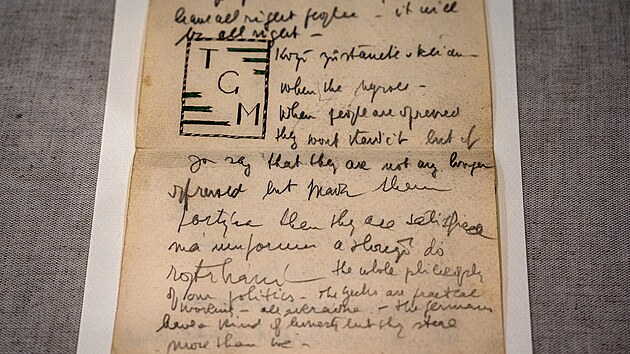 have all right people - it will
be all right -
TGM
když zůstanete v klidu -
when the negroes -
when people are opressed
they wont stand it but if
you say that they are not any longer
opressed but make them
then they are satisfied
má uniformu a
the whole philosophy
of our politics - The Czechs are practical
workers - - the Germans
have a kind of honesty but they steal
more than we -